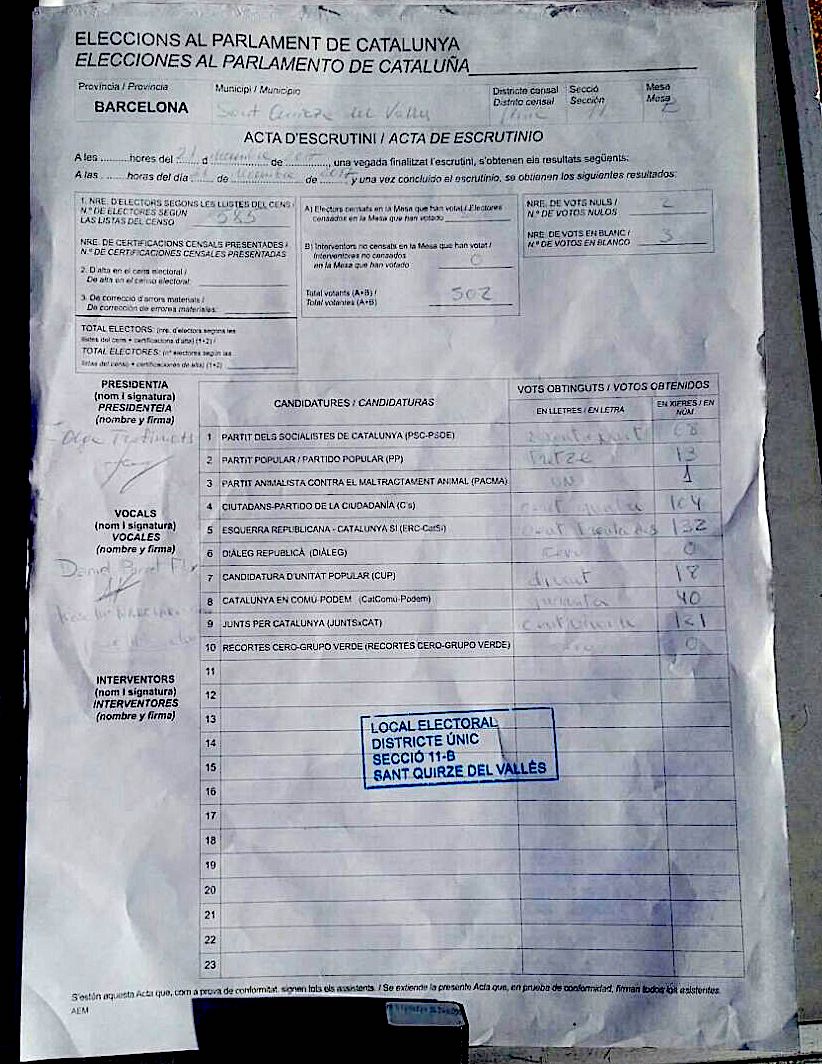 ELECCIONS AL PARLAMENT DE CATALUNYA
ELECCIONES AL PARLAMENTO DE CATALUÑA
Província / Provincia Municipi / Municipio Districte censal Secció Mesa
Distrito censal Sección Mesa
BARCELONA Sant Quirze del Vallès 11 2
ACTA D'ESCRUTINI / ACTA DE ESCRUTINIO
A les .......... hores del 21 d ............ de ............, una vegada finalitzat l'escrutini, s'obtenen els resultats següents:
A las ..... horas del día 21 de diciembre de 2017 y una vez concluido el escrutinio, se obtienen los siguientes resultados:
1. NRE. D'ELECTORS SEGONS LES LLISTES DEL CENS /
N.º DE ELECTORES SEGÚN
LAS LISTAS DEL CENSO 583
NRE. DE CERTIFICACIONS CENSALS PRESENTADES /
N.º DE CERTIFICACIONES CENSALES PRESENTADAS
2. D'alta en el cens electoral /
De alta en el censo electoral:
3. De correcció d'errors materials /
De corrección de errores materiales:
TOTAL ELECTORS: (nre. d'electors segons les
llistes del cens + certificacions d'alta) (1+2) /
TOTAL ELECTORES: (nº electores según las
listas del censo + certificaciones de alta) (1+2)
A) Electors censats en la Mesa que han votat / Electores
censados en la Mesa que han votado
B) Interventors no censats en la Mesa que han votat /
Interventores no censados
en la Mesa que han votado 0
Total votants (A+B) /
Total votantes (A+B) 502
NRE. DE VOTS NULS /
N.º DE VOTOS NULOS 2
NRE. DE VOTS EN BLANC /
N.º DE VOTOS EN BLANCO 3
PRESIDENT/A
(nom i signatura)
PRESIDENTE/A
(nombre y firma)
Olga
VOCALS
(nom i signatura)
VOCALES
(nombre y firma)
Daniel
INTERVENTORS
(nom i signatura)
INTERVENTORES
(nombre y firma)
CANDIDATURES / CANDIDATURAS VOTS OBTINGUTS / VOTOS OBTENIDOS
EN LLETRES / EN LETRA EN XIFRES / EN
NÚM
1 PARTIT DELS SOCIALISTES DE CATALUNYA (PSC-PSOE) 68
2 PARTIT POPULAR / PARTIDO POPULAR (PP) tretze 13
3 PARTIT ANIMALISTA CONTRA EL MALTRACTAMENT ANIMAL (PACMA) un 1
4 CIUTADANS-PARTIDO DE LA CIUDADANÍA (C's) cent quatre 104
5 ESQUERRA REPUBLICANA - CATALUNYA SÍ (ERC-CatSí) cent trenta dos 132
6 DIÀLEG REPUBLICÀ (DIÀLEG) zero 0
7 CANDIDATURA D'UNITAT POPULAR (CUP) divuit 18
8 CATALUNYA EN COMÚ-PODEM (CatComú-Podem) quaranta 40
9 JUNTS PER CATALUNYA (JUNTSxCAT) 121
10 RECORTES CERO-GRUPO VERDE (RECORTES CERO-GRUPO VERDE) 0
11
12
13
14
15
16
17
18
19
20
21
22
23
LOCAL ELECTORAL
DISTRICTE ÚNIC
SECCIÓ 11-B
SANT QUIRZE DEL VALLÈS
S'estén aquesta Acta que, com a prova de conformitat, signen tots els assistents. / Se extiende la presente Acta que, en prueba de conformidad, firman todos los asistentes.
AEM